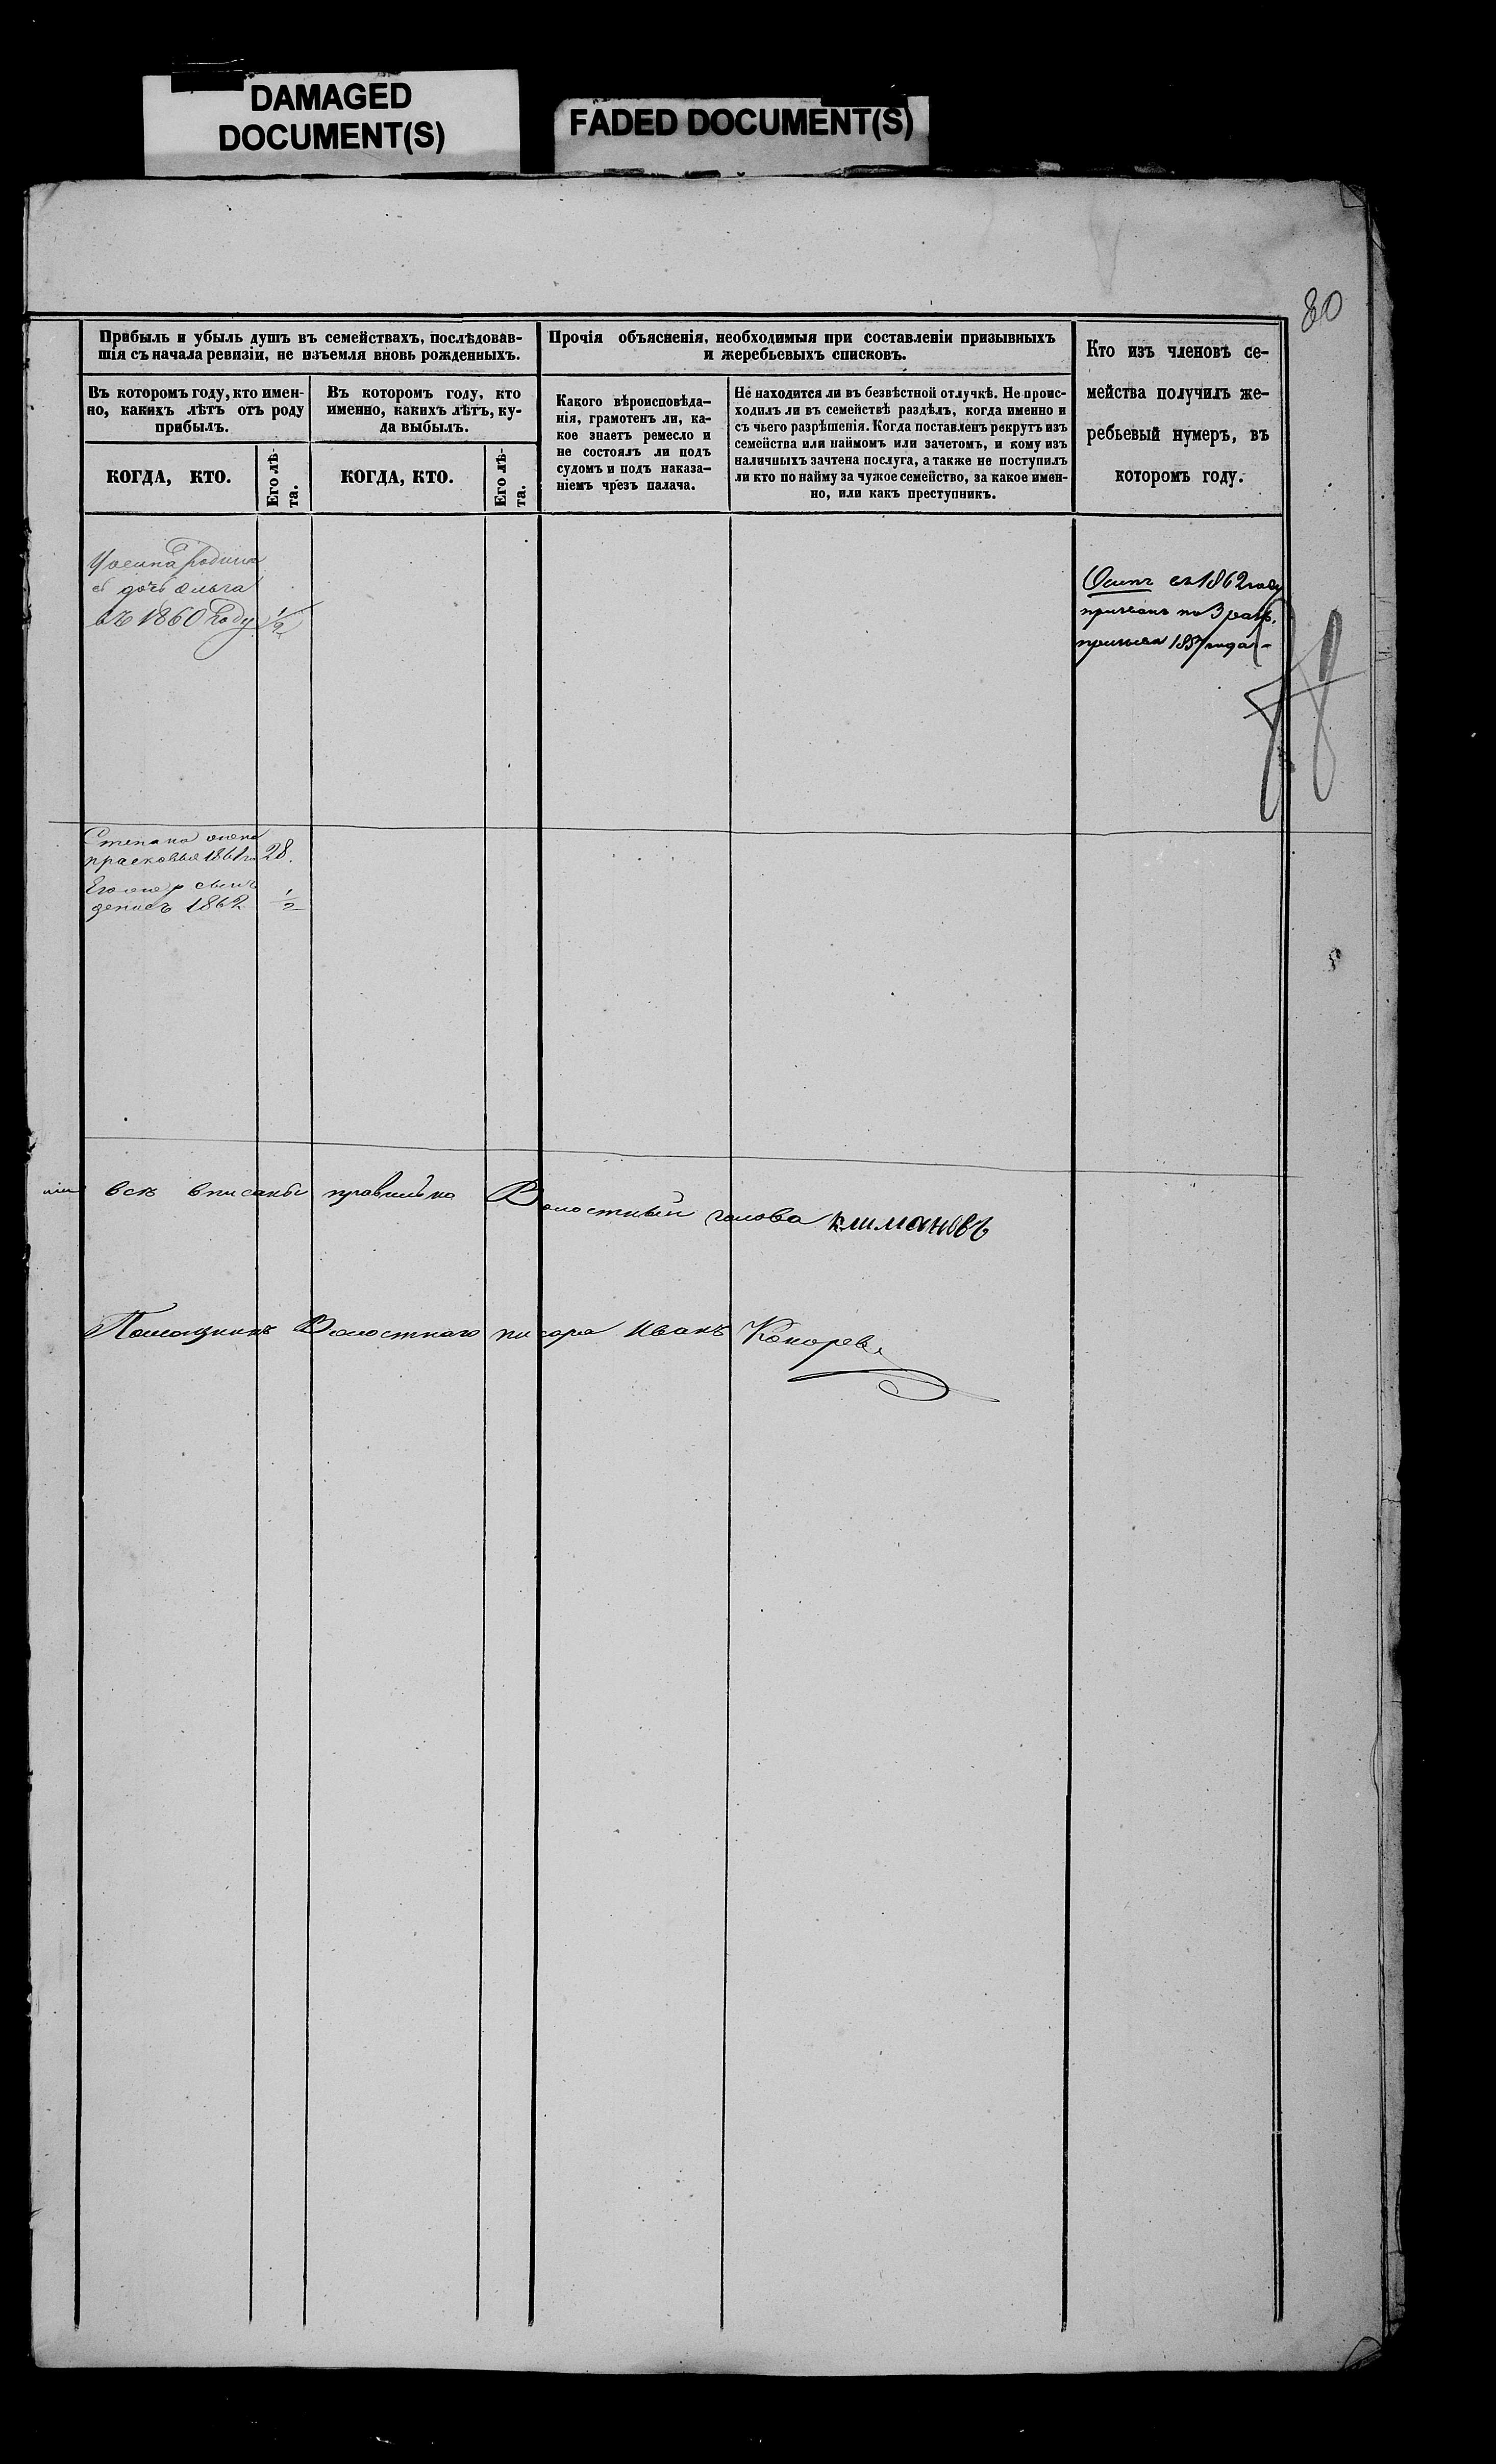 DAMAGED
DOCUMENT(S)
FADED DOCUMENT(S)
80
Прибыль и убыль душъ въ семействахъ, послѣдовав-
шія съ начала ревизіи, не изъемля вновь рожденныхъ.
Въ которомъ году, кто имен-
но, какихъ лѣтъ отъ роду
прибылъ.
КОГДА, КТО.
Его лѣ-
та.
Въ которомъ году, кто
именно, какихъ лѣтъ, ку-
да выбылъ.
КОГДА, КТО.
Его лѣ-
та.
Прочія объясненія, необходимыя при составленіи призывныхъ
и жеребьевыхъ списковъ.
Какого вѣроисповѣда-
нія, грамотенъ ли, ка-
кое знаетъ ремесло и
не состоялъ ли подъ
судомъ и подъ наказа-
ніемъ чрезъ палача.
Не находится ли въ безвѣстной отлучкѣ. Не проис-
ходилъ ли въ семействѣ раздѣлъ, когда именно и
съ чьего разрѣшенія. Когда поставленъ рекрутъ изъ
семейства или наймомъ или зачетомъ, и кому изъ
наличныхъ зачтена послуга, а также не поступилъ
ли кто по найму за чужое семейство, за какое имен-
но, или какъ преступникъ.
Кто изъ членовъ се-
мейства получилъ же-
ребьевый нумеръ, въ
которомъ году.
Уосипа родила
дочь ольга
въ 1860 году 1/2
Осипъ въ 1862 году
по 3
1857 года
Степана жена
прасковья 1861 28.
сынъ
денисъ 1862 1/2
всѣ вписаны правильно Волостный голова климановъ
Помощникъ Волостнаго писаря Иванъ Кокорев